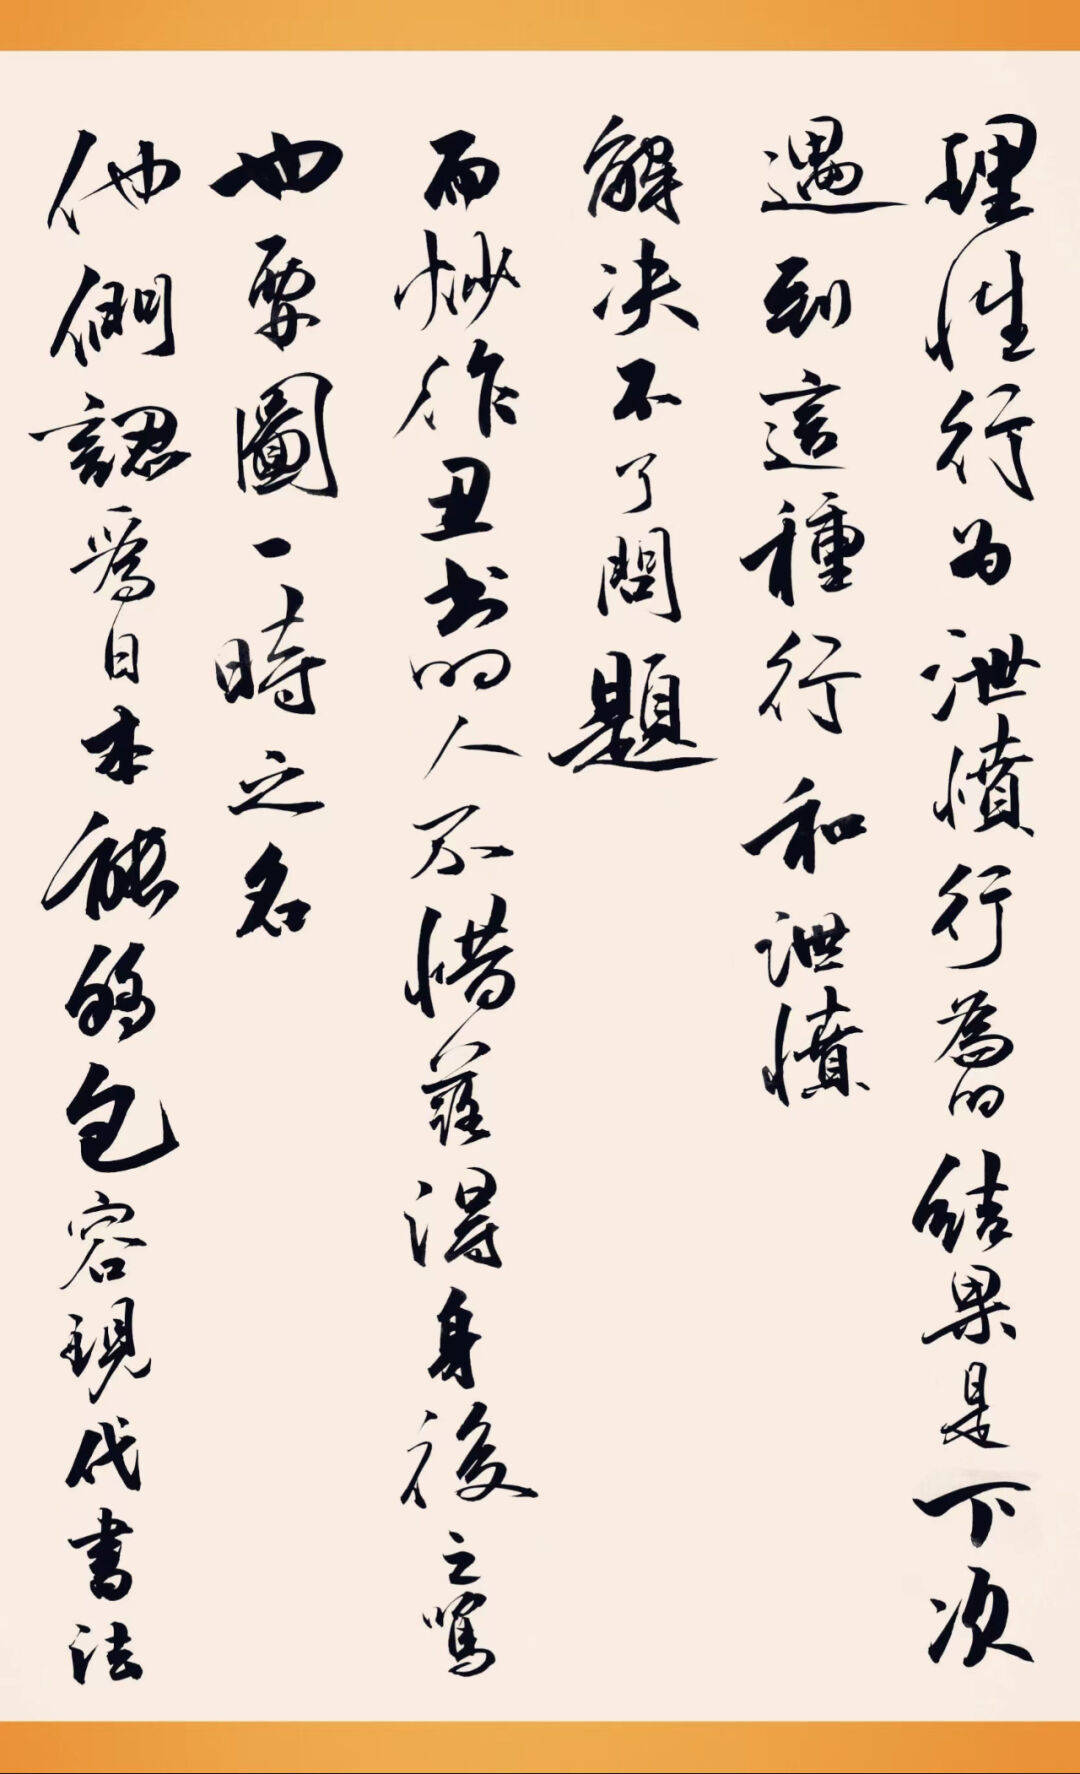 理性行为泄憤行為的结果是下次
遇到這種行和泄憤
解决不了問題
而炒作丑书的人不惜落得身後之骂
也要圖一時之名
他們認為日本能够包容現代書法